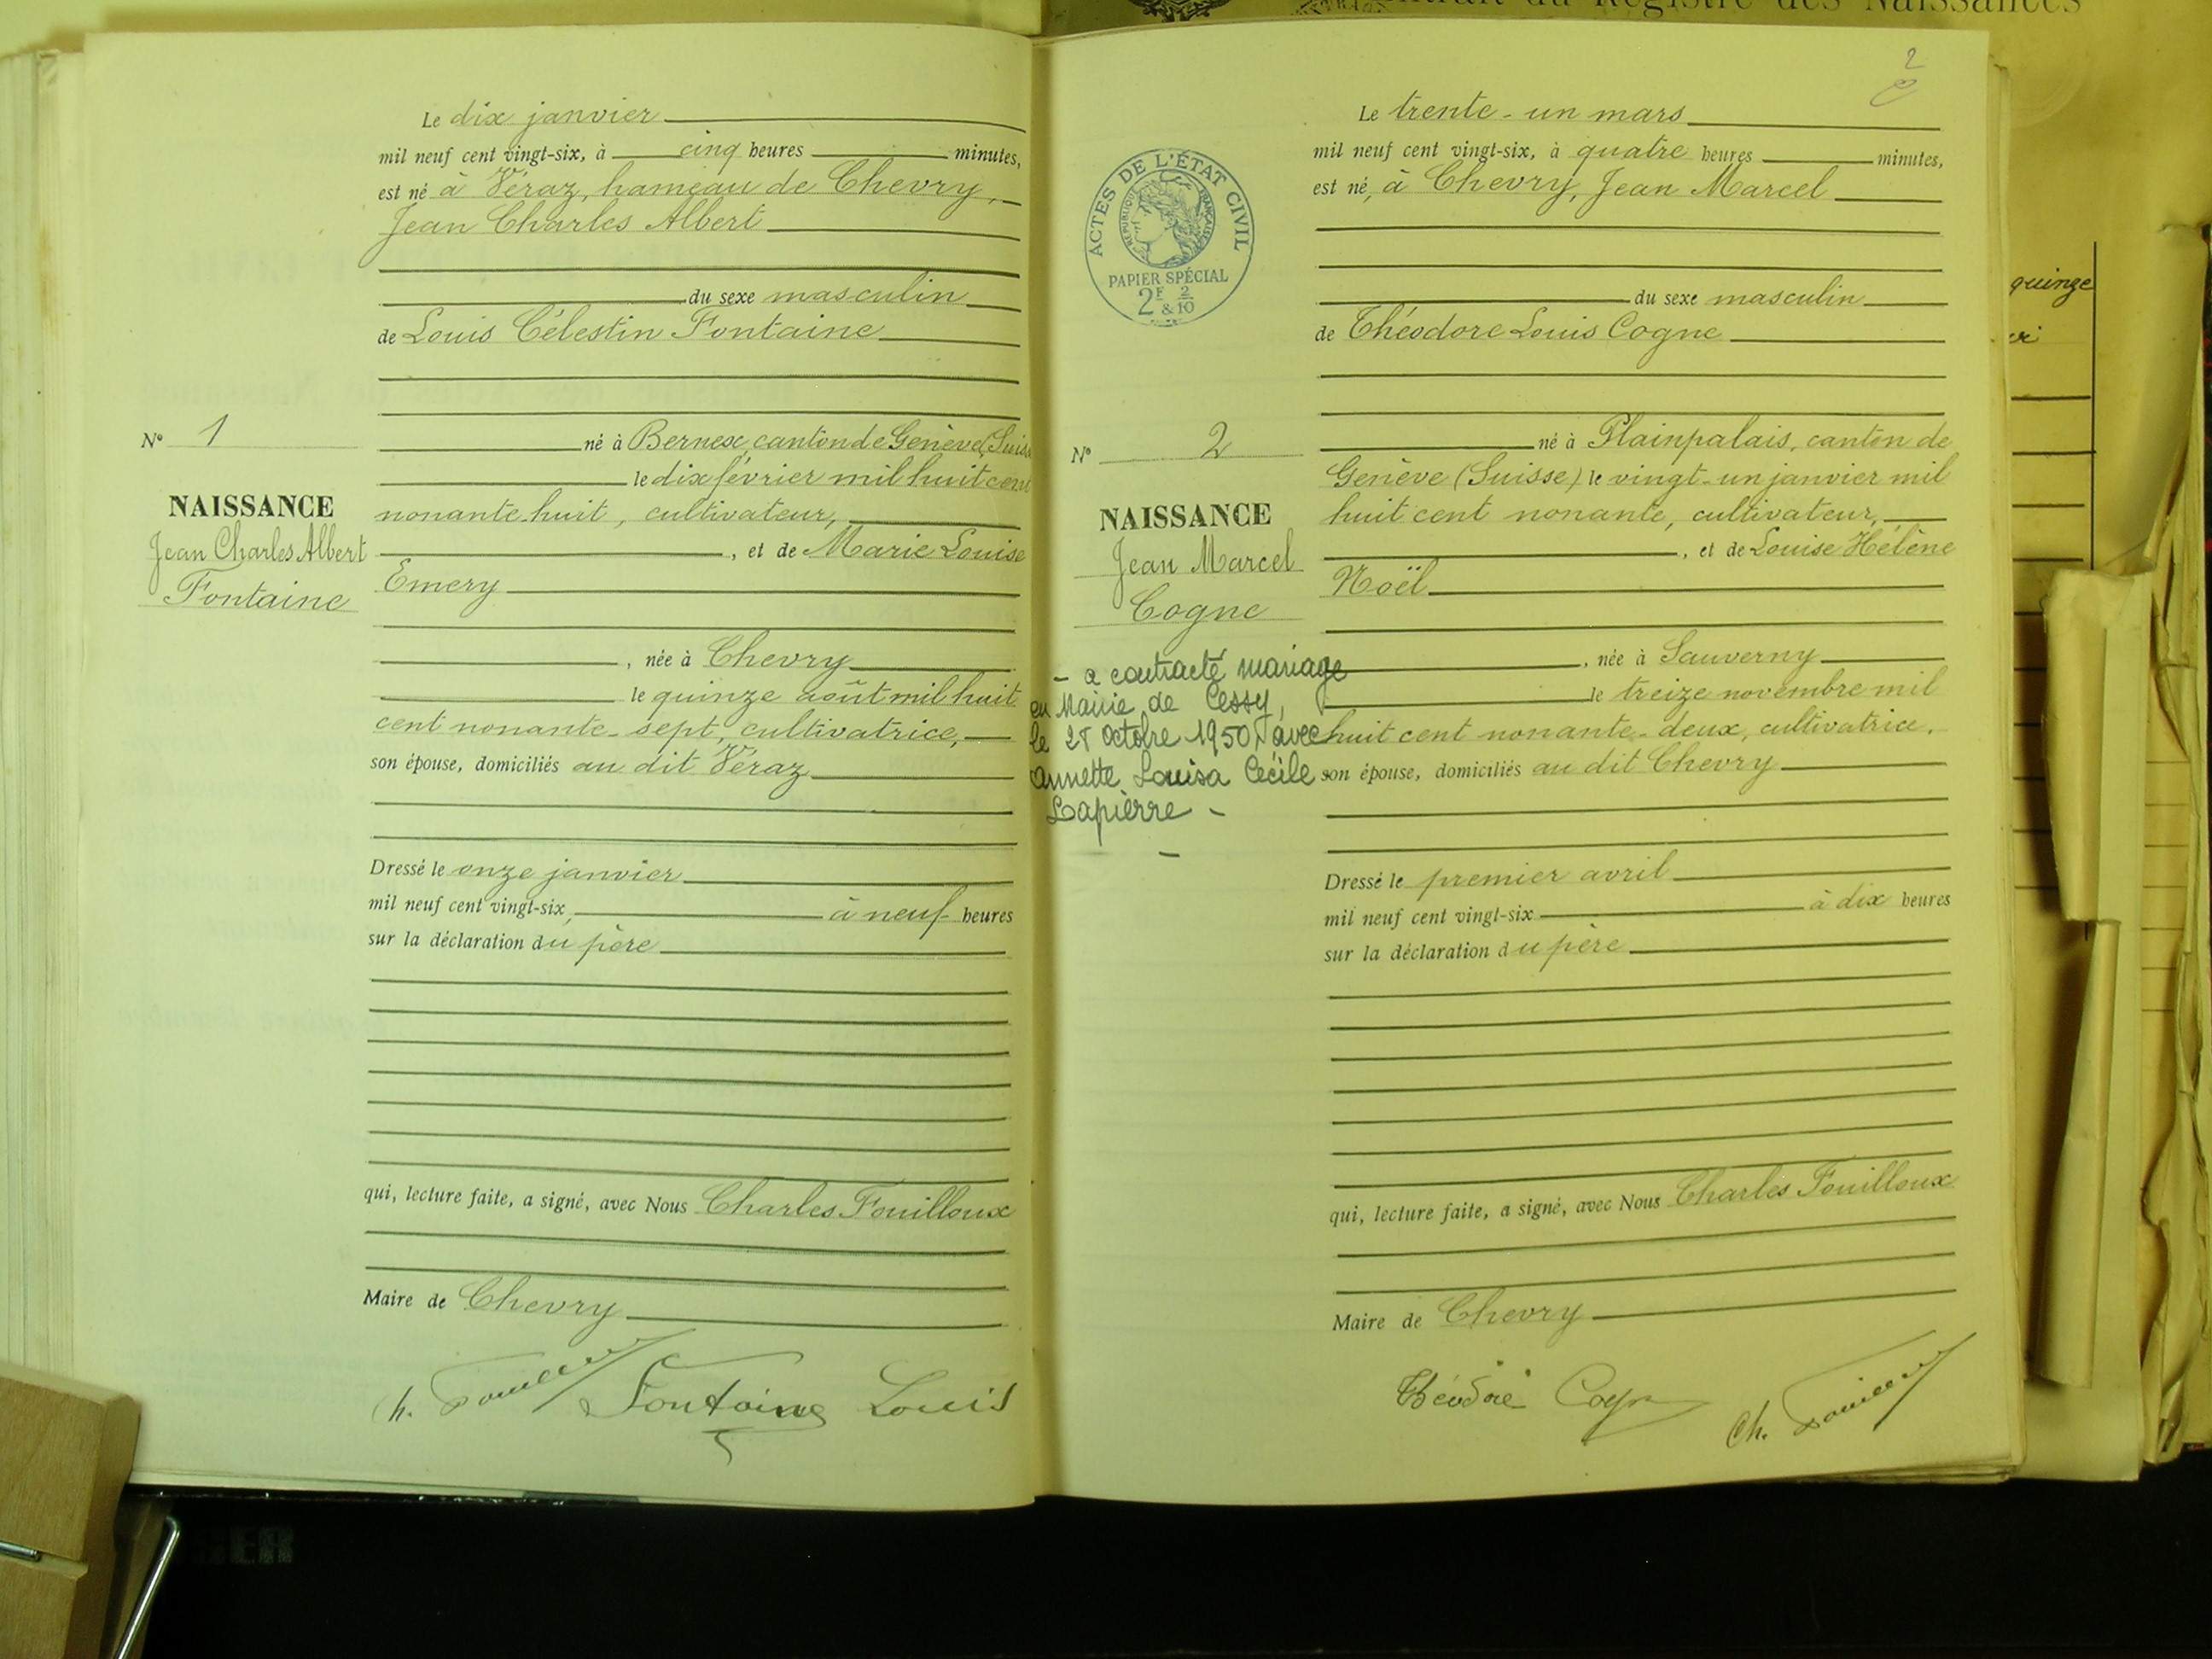 Extrait du Registre des Naissances
Le dix janvier
mil neuf cent vingt-six, à cinq heures minutes,
est né à Véraz, hameau de Chevry,
Jean Charles Albert
du sexe masculin
de Louis Célestin Fontaine
né à Bernex, canton de Genève (Suisse
le dix février mil huit cent
nonante-huit, cultivateur,
, et de Marie Louise
Emery
, née à Chevry
le quinze août mil huit
cent nonante-sept, cultivatrice,
son épouse, domiciliés au dit Véraz
Dressé le onze janvier
mil neuf cent vingt-six, à neuf heures
sur la déclaration du père
qui, lecture faite, a signé, avec Nous Charles Fouilloux
Maire de Chevry
Ch. Fouilloux Fontaine Louis
N° 1
NAISSANCE
Jean Charles Albert
Fontaine
2
Le trente-un mars
mil neuf cent vingt-six, à quatre heures minutes,
est né, à Chevry, Jean Marcel
du sexe masculin
de Théodore Louis Cogne
né à Plainpalais, canton de
Genève (Suisse) le vingt-un janvier mil
huit cent nonante, cultivateur,
, et de Louise Hélène
Noël
, née à Sauverny
le treize novembre mil
huit cent nonante-deux, cultivatrice,
son épouse, domiciliés au dit Chevry
Dressé le premier avril
mil neuf cent vingt-six à dix heures
sur la déclaration du père
qui, lecture faite, a signé, avec Nous Charles Fouilloux
Maire de Chevry
Théodore Cogne Ch. Fouilloux
ACTES DE L'ÉTAT CIVIL
RÉPUBLIQUE FRANÇAISE
PAPIER SPÉCIAL
2F & 2/10
N° 2
NAISSANCE
Jean Marcel
Cogne
- a contracté mariage
en Mairie de Cessy,
le 28 octobre 1950, avec
Annette Louisa Cécile
Lapierre -
quinze